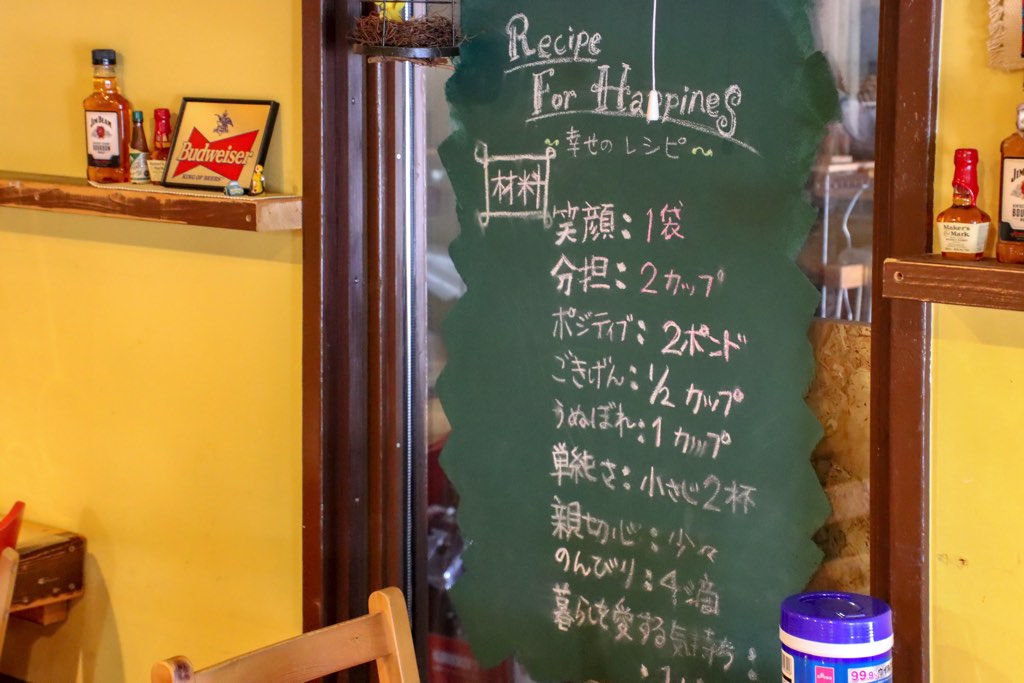 Recipe
For Happines
~幸せのレシピ~
材料
笑顔:1袋
分担:2カップ
ポジティブ:2ポンド
ごきげん:1/2カップ
うぬぼれ:1カップ
単純さ:小さじ2杯
親切心:少々
のんびり:4滴
暮らしを愛する気持ち:
JIM BEAM
BOURBON
Budweiser
KING OF BEERS
Maker's
Mark
JIM
99.9